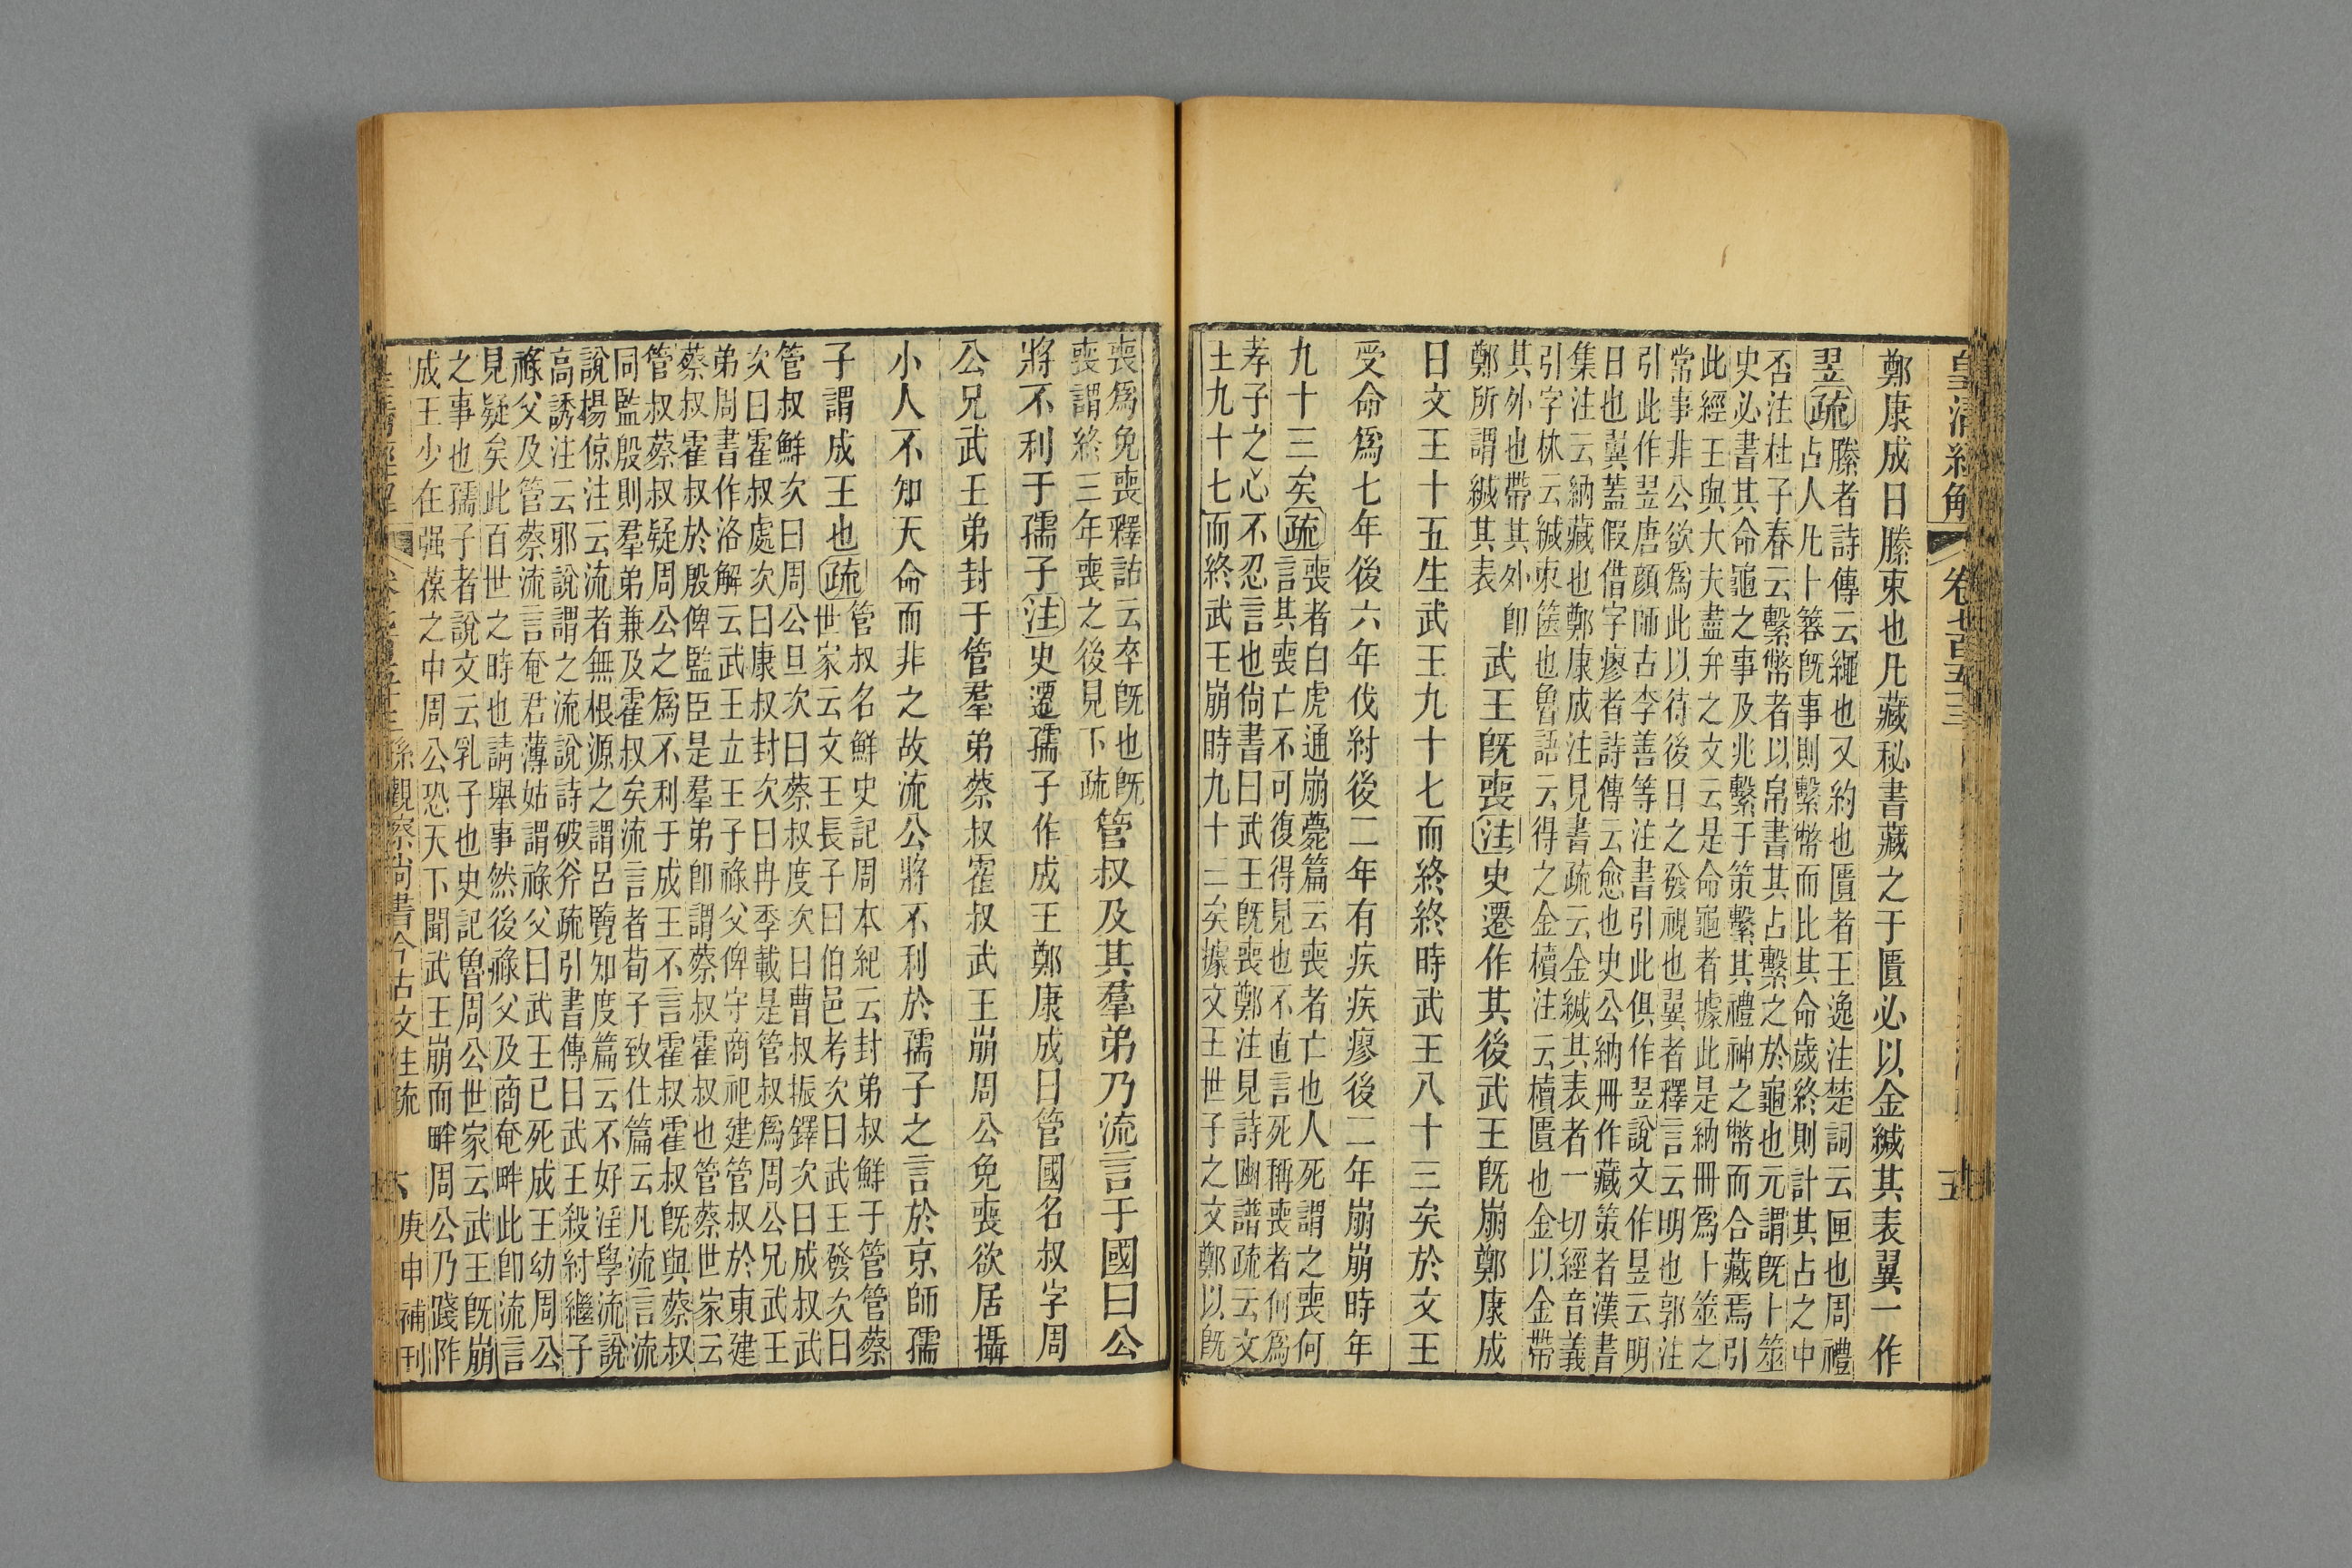 皇清經解 卷七百五十三
鄭康成曰縢束也凡藏秘書藏之于匱必以金緘其表翼一作
翌疏縢者詩傳云繩也又約也匱者王逸注楚詞云匣也周禮
占人凡卜簭既事則繫幣而比其命歲終則計其占之中
否注杜子春云繫幣者以帛書其占繫之於龜也元謂既卜筮
史必書其命龜之事及兆繫于策繫其禮神之幣而合藏焉引
此經王與大夫盡弁之文云是命龜者據此是納冊爲卜筮之
常事非公欲爲此以待後日之發視也翼者釋言云明也郭注
引此作翌唐顏師古李善等注書引此俱作翌說文作昱云明
日也翼蓋假借字瘳者詩傳云愈也史公納冊作藏策者漢書
集注云納藏也鄭康成注見書疏云金緘其表者一切經音義
引字林云緘束篋也魯語云得之金櫝注云櫝匱也金以金帶
其外也帶其外卽
鄭所謂緘其表
武王既喪注史遷作其後武王既崩鄭康成
日文王十五生武王九十七而終終時武王八十三矣於文王
受命爲七年後六年伐紂後二年有疾疾瘳後二年崩崩時年
九十三矣疏喪者白虎通崩薨篇云喪者亡也人死謂之喪何
言其喪亡不可復得見也不直言死稱喪者何爲
孝子之心不忍言也尙書曰武王既喪鄭注見詩豳譜疏云文
王九十七而終武王崩時九十三矣據文王世子之文鄭以既
喪爲免喪釋詁云卒既也既
喪謂終三年喪之後見下疏
管叔及其羣弟乃流言于國曰公
將不利于孺子注史遷孺子作成王鄭康成曰管國名叔字周
公兄武王弟封于管羣弟蔡叔霍叔武王崩周公免喪欲居攝
小人不知天命而非之故流公將不利於孺子之言於京師孺
子謂成王也疏管叔名鮮史記周本紀云封弟叔鮮于管管蔡
世家云文王長子曰伯邑考次曰武王發次曰
管叔鮮次曰周公旦次曰蔡叔度次曰曹叔振鐸次曰成叔武
次曰霍叔處次曰康叔封次曰冉季載是管叔爲周公兄武王
弟周書作洛解云武王立王子祿父俾守商祀建管叔於東建
蔡叔霍叔於殷俾監臣是羣弟卽謂蔡叔霍叔也管蔡世家云
管叔蔡叔疑周公之爲不利于成王不言霍叔霍叔既與蔡叔
同監殷則羣弟兼及霍叔矣流言者荀子致仕篇云凡流言流
說楊倞注云流者無根源之謂呂覽知度篇云不好淫學流說
高誘注云邪說謂之流說詩破斧疏引書傳曰武王殺紂繼子
祿父及管蔡流言奄君薄姑謂祿父曰武王已死成王幼周公
見疑矣此百世之時也請舉事然後祿父及商奄畔此卽流言
之事也孺子者說文云乳子也史記魯周公世家云武王既崩
成王少在强葆之中周公恐天下聞武王崩而畔周公乃踐阼
孫觀察尙書今古文注疏 庚申補刊